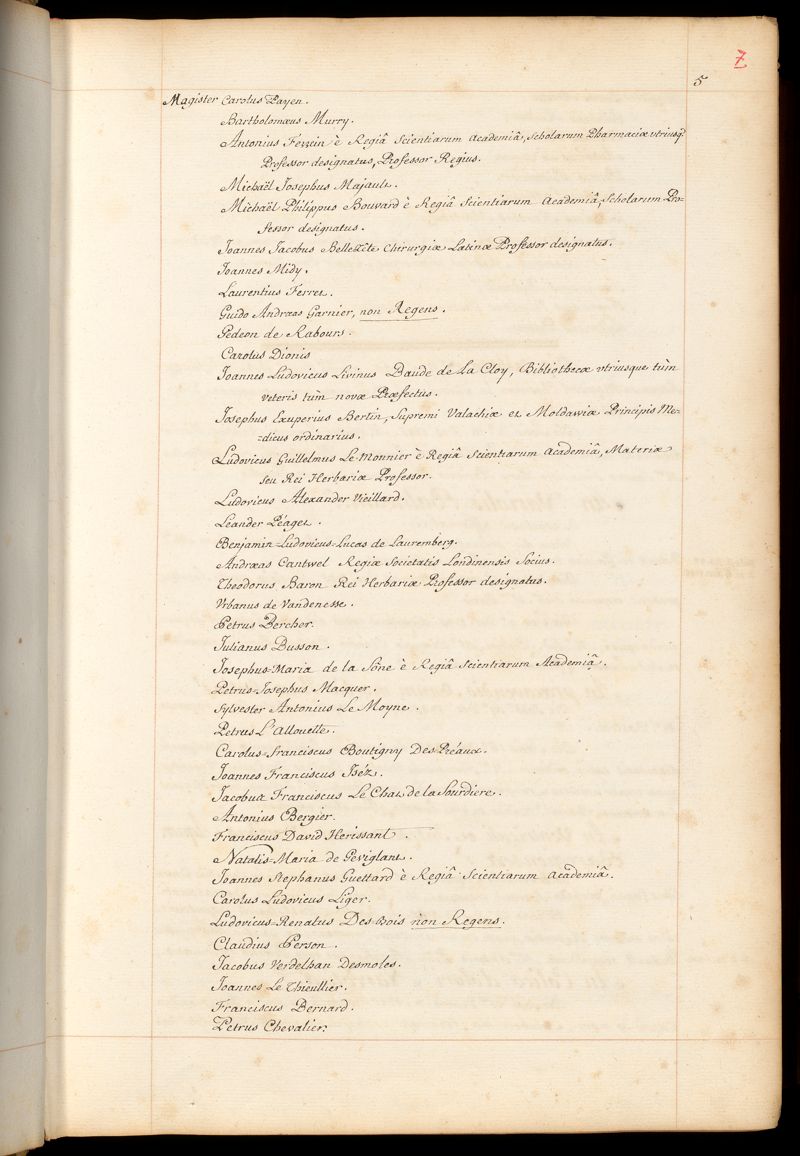 7
5
Magister Carolus Payen.
Bartholomæus Murry.
Antonius Ferrein è Regiâ Scientiarum Academiâ, Scholarum Pharmaciæ vtriusq
Professor designatus, Professor Regius.
Michaël Josephus Majault.
Michaël Philippus Bouvard è Regiâ Scientiarum Academiâ, Scholarum Pro-
fessor designatus.
Joannes Jacobus Belletête Chirurgiæ Latinæ Professor designatus.
Joannes Midy.
Laurentius Ferret.
Guido Andræas Garnier, non Regens.
Gedeon de Rabours.
Carolus Dionis
Joannes Ludovicus Livinus Baude de La Cloy, Bibliothecæ vtriusque tùm
veteris tùm novæ Præfectus.
Josephus Exuperius Bertin, Supremi Valachiæ et Moldawiæ Principis Me-
-dicus ordinarius.
Ludovicus Guillelmus Le Monnier è Regiâ Scientiarum Academiâ, Materiæ
seu Rei Herbariæ Professor.
Ludovicus Alexander Vieillard.
Leander Péaget.
Benjamin-Ludovicus-Lucas de Lauremberg.
Andræas Cantwel Regiæ Societatis Londinensis Socius.
Theodorus Baron Rei Herbariæ Professor designatus.
Vrbanus de Vandenesse.
Petrus Bercher.
Julianus Busson.
Josephus-Maria de la Sône è Regiâ Scientiarum Academiâ.
Petrus-Josephus Macquer.
Sylvester Antonius Le Moyne.
Petrus L'allouette.
Carolus-franciscus Boutigny Des-Préaux.
Joannes Franciscus Iséz.
Jacobus Franciscus Le Chat de la Sourdiere.
Antonius Bergier.
Franciscus David Herissant.
Natalis-Maria de Gevigland.
Joannes Stephanus Guettard è Regiâ Scientiarum Academiâ.
Carolus Ludovicus Liger.
Ludovicus-Renatus Des-Bois non Regens.
Claudius Person.
Jacobus Verdelhan Desmoles.
Joannes Le Thieullier.
Franciscus Bernard.
Petrus Chevalier.